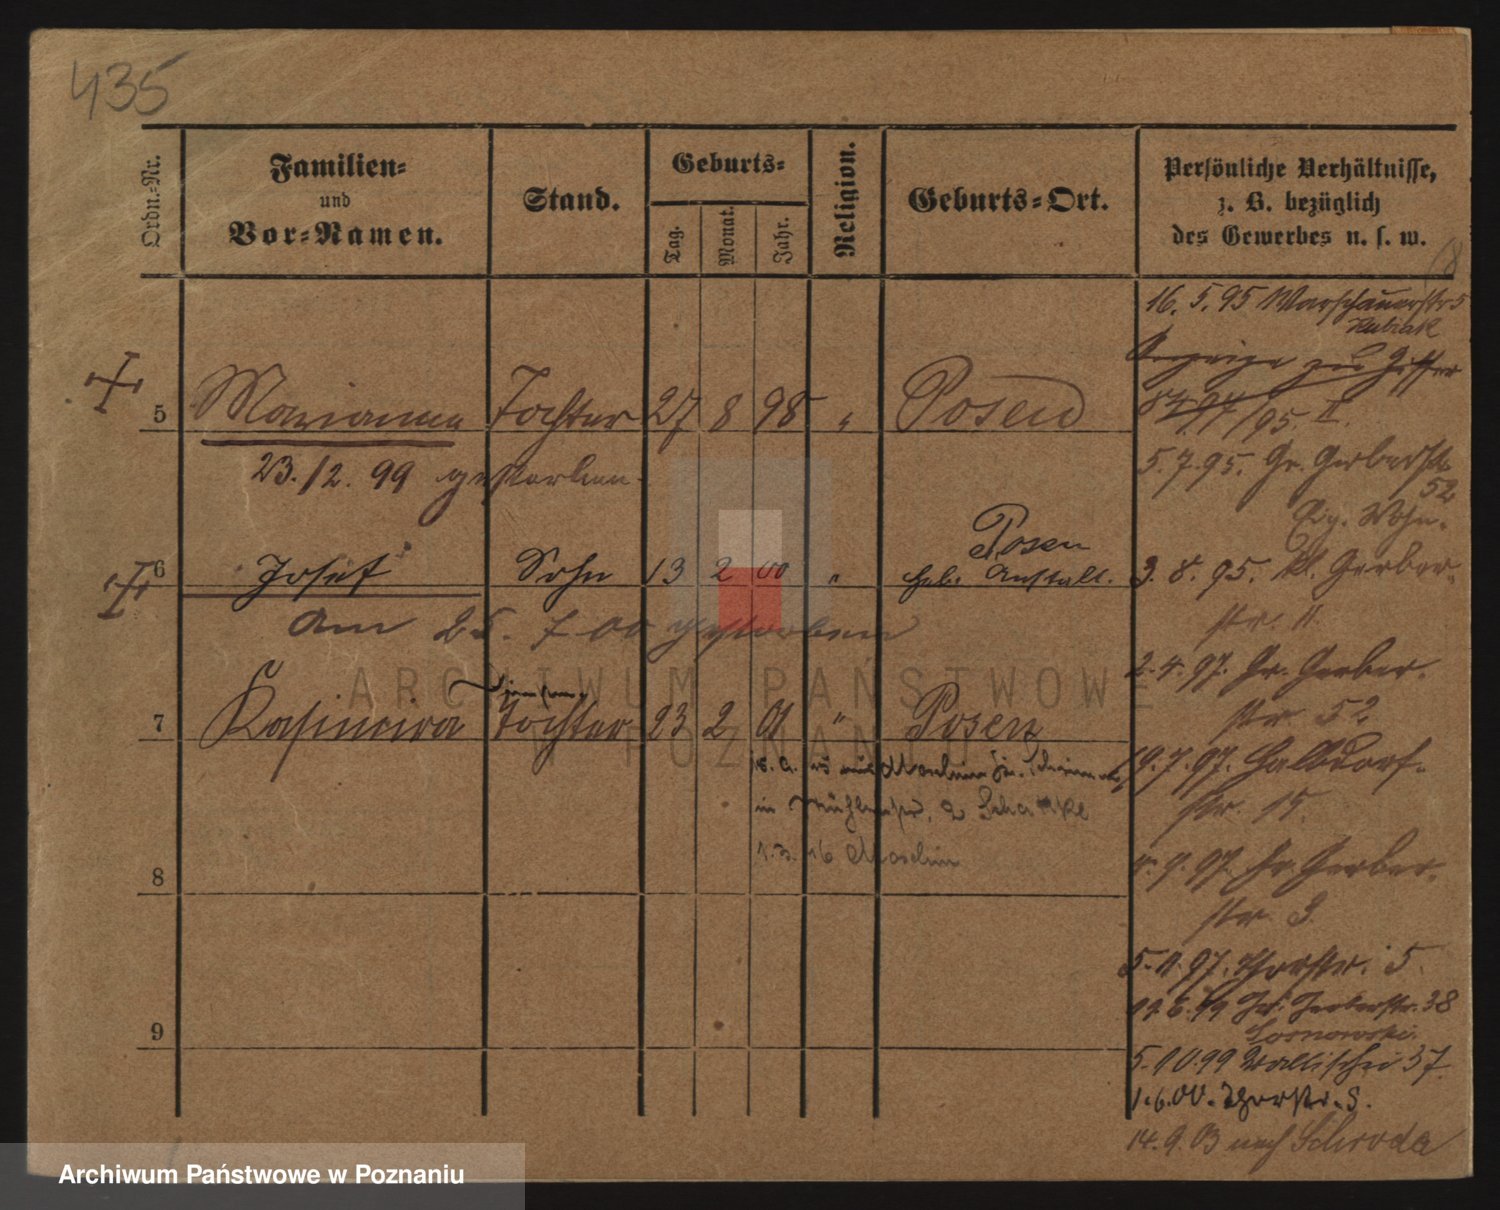 435
Ordn.-Nr.
Familien-
und
Vor-Namen.
Stand.
Geburts-
Tag.
Monat.
Jahr.
Religion.
Geburts-Ort.
Persönliche Verhältnisse,
z. B. bezüglich
des Gewerbes u. s. w.
16. 5. 95 Warschauerstr 5
Anzeige zu Ziffer
/95. II.
5 Marianna Tochter 27 8 98 " Posen
23./2. 99 gestorben.
5. 7. 95. Gr. Gerberstr.
52
Eig. Wohn.
6 Josef Sohn 13 2 00 " Posen
Heb. Anstalt.
3. 8. 95. Kl. Gerber-
str. 11.
am 25. 7 00 gestorben
2. 4. 97. Gr. Gerber-
str. 52
7 Kasimira Tochter 23 2 01 " Posen
19. 7. 97. Halbdorf-
str. 15.
in Mühlenstr. 2
1. 3. 16 Moschin
4. 9. 97. Gr. Gerber-
str. 3.
8
5. 11. 97. Thorstr. 5.
Gr. Gerberstr. 38
Sosnowski.
9
5. 10. 99 Wallischei 37
1. 6. 00. Thorstr. 5.
14. 9. 03 nach Schroda
ARCHIWUM PAŃSTWOWE
W POZNANIU
Archiwum Państwowe w Poznaniu